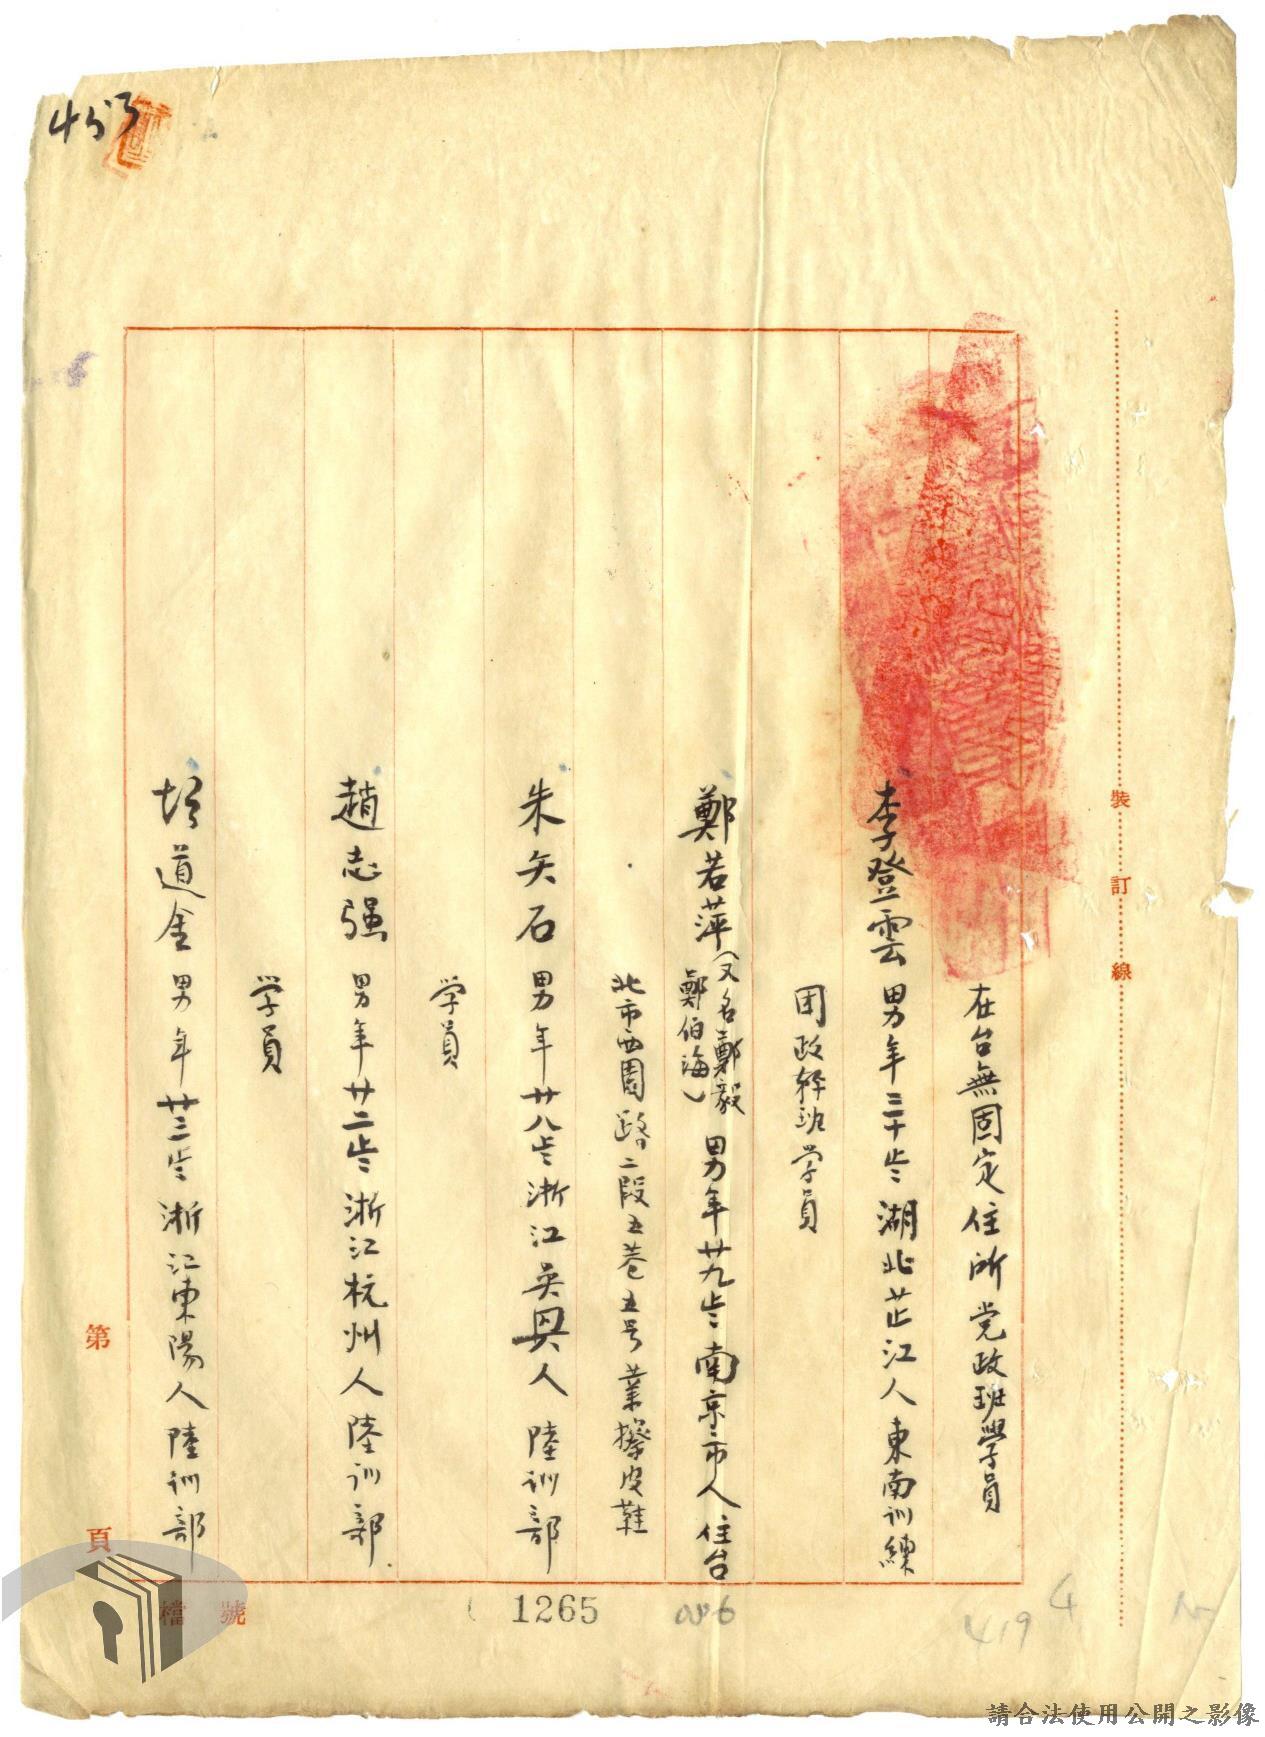 453
裝訂線
在台無固定住所党政班學員
李登雲 男年三十歲 湖北芷江人東南訓練
团政幹班学員
鄭若萍(又名鄭毅鄭伯海) 男年廿九歲南京市人住台
北市西園路二段五巷五号業擦皮鞋
朱矢石 男年廿八歲浙江吳興人 陸訓部
学員
趙志强 男年廿二歲浙江杭州人陸訓部
学員
道金 男年廿三歲浙江東陽人陸訓部
第頁
檔號
1265
086
419
4
請合法使用公開之影像